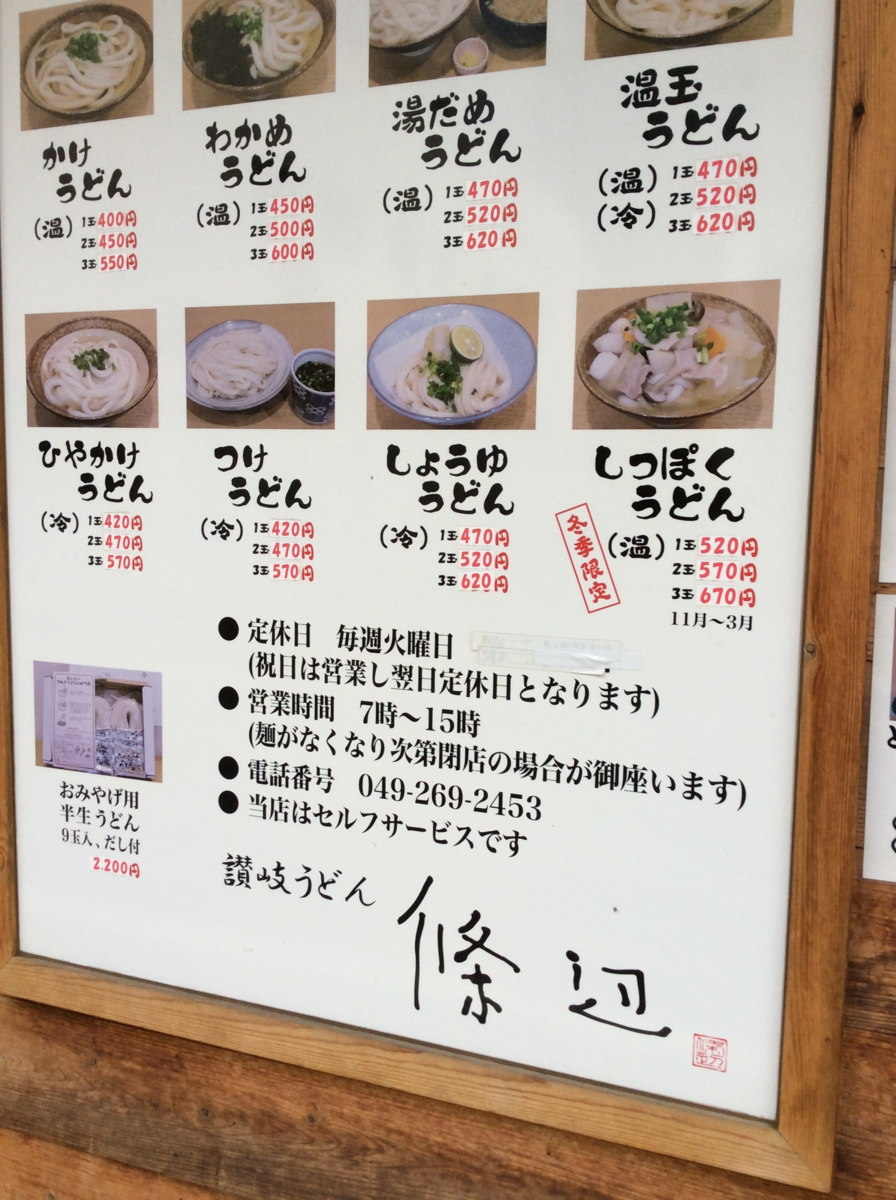 かけ
うどん
(温) 1玉400円
2玉450円
3玉550円
わかめ
うどん
(温) 1玉450円
2玉500円
3玉600円
湯だめ
うどん
(温) 1玉470円
2玉520円
3玉620円
温玉
うどん
(温) 1玉470円
(冷) 2玉520円
3玉620円
ひやかけ
うどん
(冷) 1玉420円
2玉470円
3玉570円
つけ
うどん
(冷) 1玉420円
2玉470円
3玉570円
しょうゆ
うどん
(冷) 1玉470円
2玉520円
3玉620円
しっぽく
うどん
冬季限定
(温) 1玉520円
2玉570円
3玉670円
11月～3月
● 定休日 毎週火曜日
(祝日は営業し翌日定休日となります)
● 営業時間 7時～15時
(麺がなくなり次第閉店の場合が御座います)
● 電話番号 049-269-2453
● 当店はセルフサービスです
おみやげ用
半生うどん
9玉入、だし付
2.200円
讃岐うどん
條辺